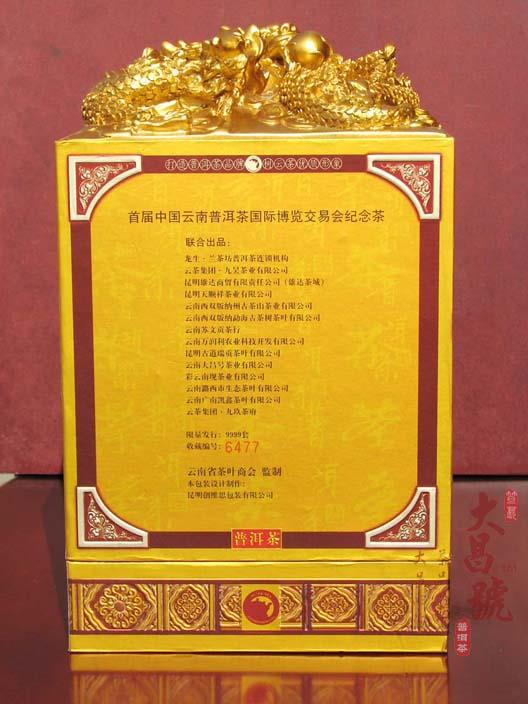 打造普洱茶品牌 树云茶优质形象
首届中国云南普洱茶国际博览交易会纪念茶
联合出品：
龙生·兰茶坊普洱茶连锁机构
云茶集团·九昊茶业有限公司
昆明雄达商贸有限责任公司（雄达茶城）
昆明天顺祥茶业有限公司
云南西双版纳州古茶山茶业有限公司
云南西双版纳勐海古茶树茶叶有限公司
云南苏文贡茶行
云南万润利农业科技开发有限公司
昆明古道瑞贡茶叶有限公司
云南大昌号茶业有限公司
彩云南现茶业有限公司
云南潞西市生态茶叶有限公司
云南广南凯鑫茶叶有限公司
云茶集团·九玖茶府
限量发行：9999套
收藏编号：6477
云南省茶叶商会 监制
本包装设计制作：
昆明创维思包装有限公司
普洱茶
大昌號
普洱茶